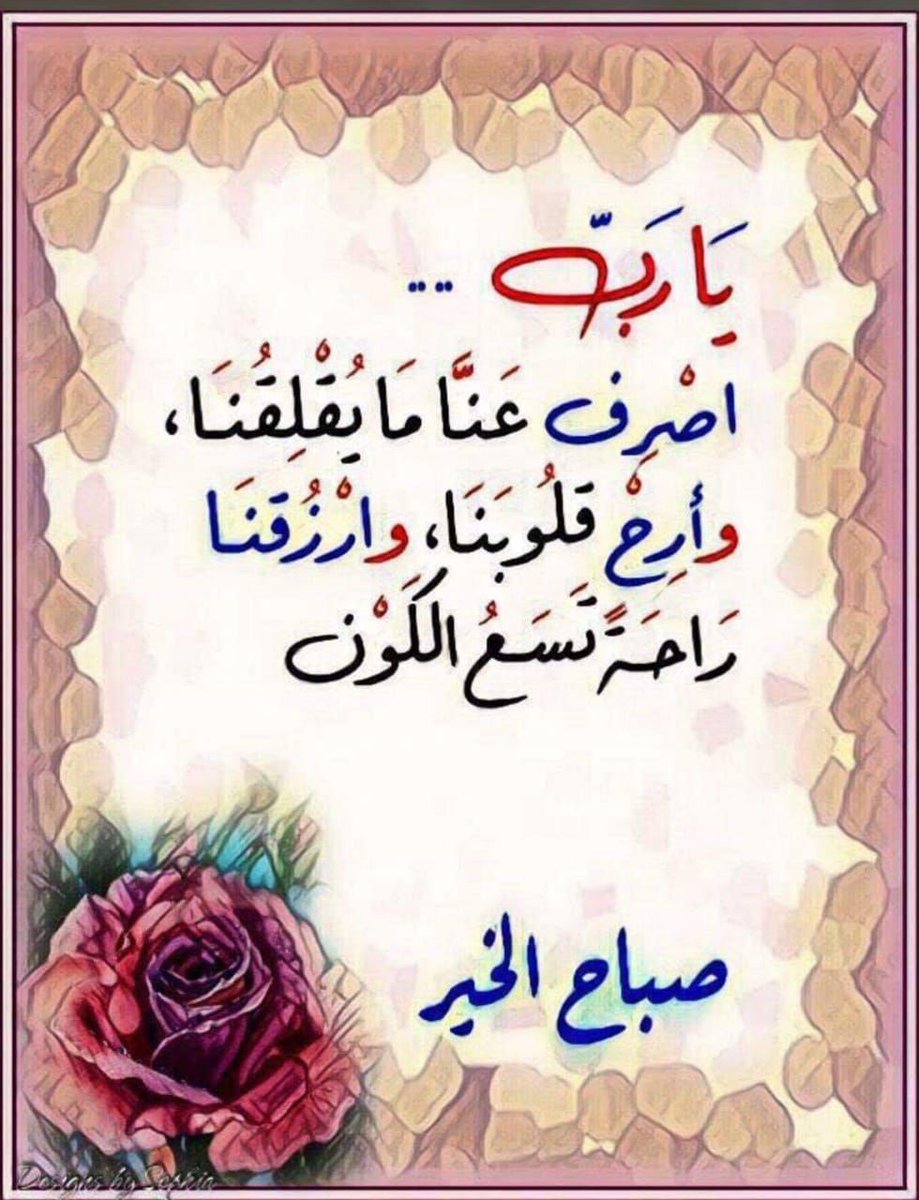 يَا رَبّ ..
اصْرِف عَنَّا مَا يُقْلِقُنَا،
وأَرِحْ قلُوبَنَا، وارْزُقنَا
رَاحَةً تَسَعُ الكَوْن
صباح الخير
Designs by Sophia